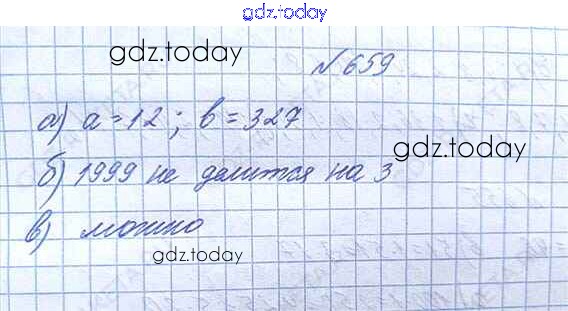 gdz.today
gdz.today
№ 659
а) a = 12 ; b = 327
gdz.today
б) 1999 не делится на 3
в) можно
gdz.today